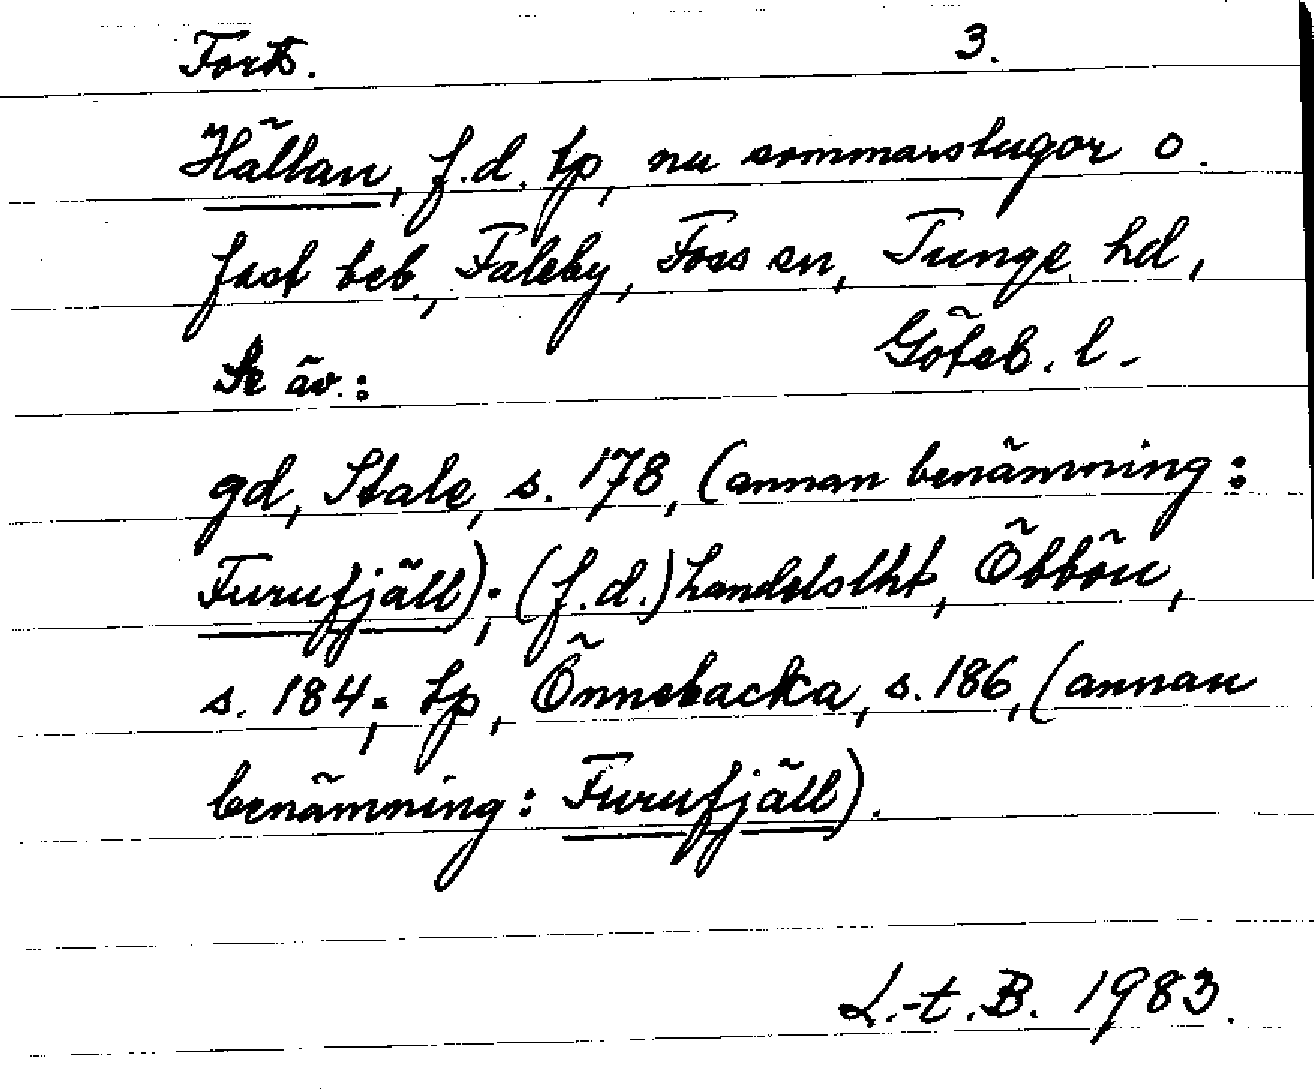 Forts. 3.
Hällan, f.d. tp, nu sommarstugor o.
fast beb., Faleby, Foss sn, Tunge hd,
Göteb. l.
Se äv.:
gd, Stale, s. 178, (annan benämning:
Furufjäll); (f.d.) handelslht, Öbbön,
s. 184; tp, Önnebacka, s. 186, (annan
benämning: Furufjäll).
L.-t. B. 1983.